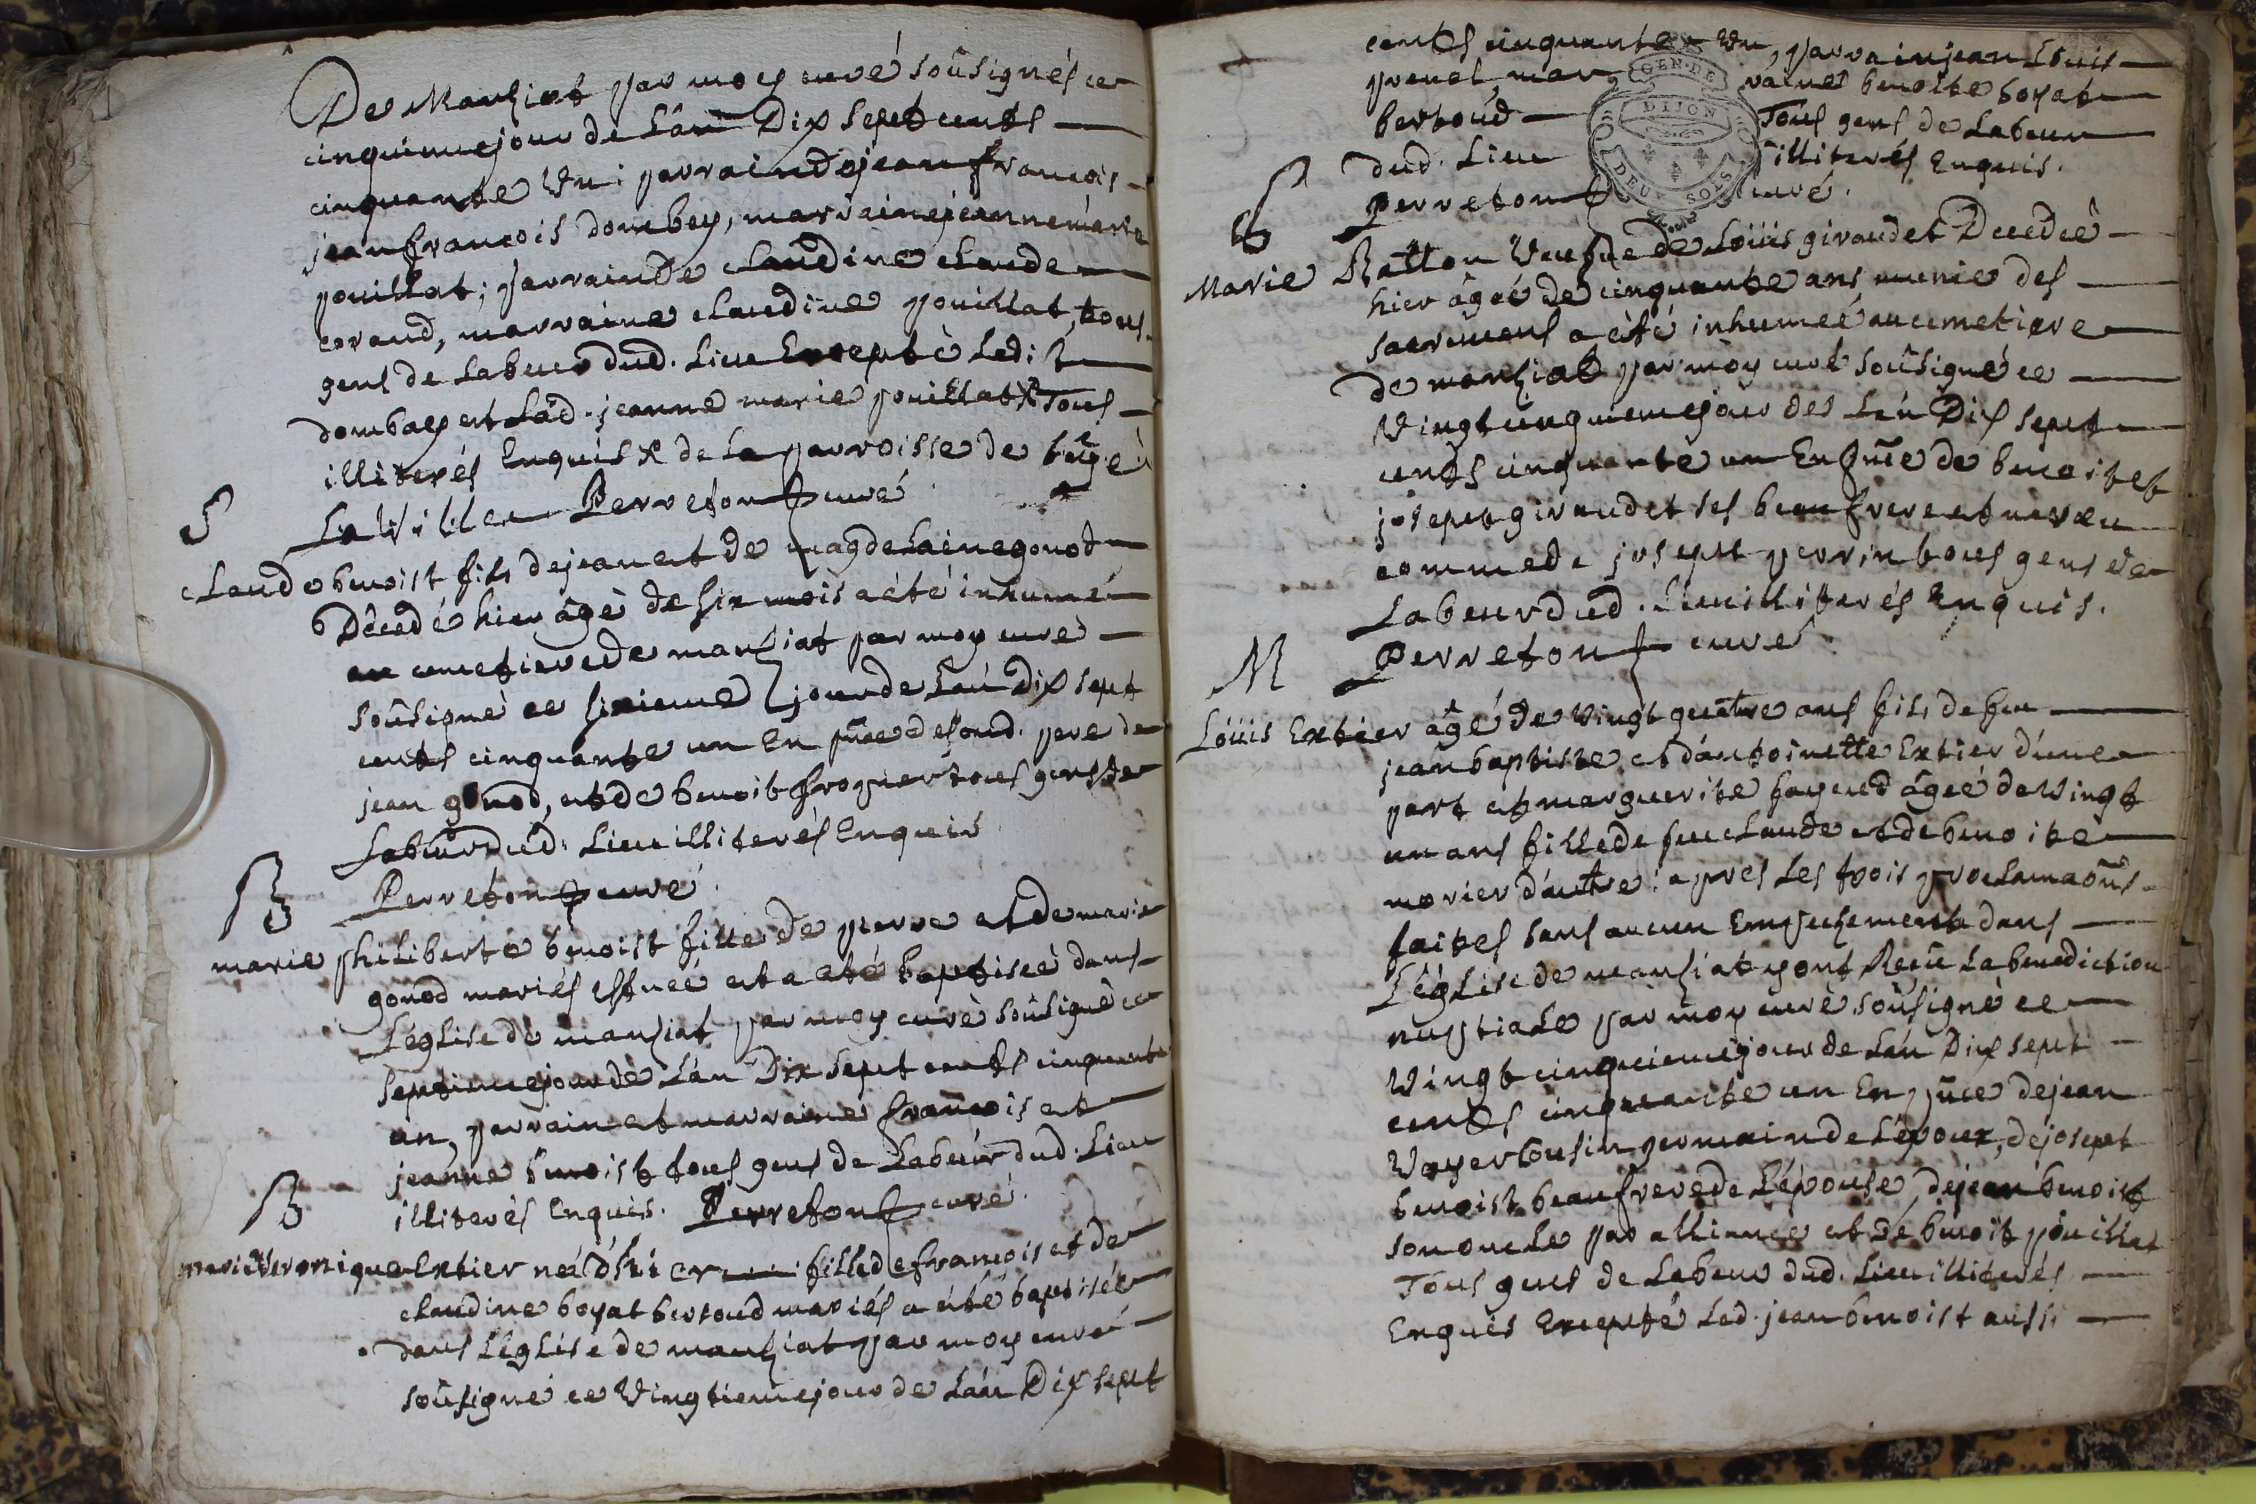 De Manziat par moy curé soûsignés ce
cinquiemejour de Lân Dix Sept cents
cinquante Un ; parraindejean francois
jeanfrancois dombey, marrainejeannemarie
pouillat ; parrainde claudine claude
coraud, marraine claudine pouillat, tous
gens de Labeur dud. Lieu Excepté Ledit
dombaey et Lâd. jeanne marie pouillat Tous
illiterés Enquis X de La parroisse de bâgé
LaVille Perreton curé
S
claude benoist fils dejean et de magdelaine gonod
Décedé hier âgé de six mois a été inhumé
au cimetierede manziat par moy curé
soûsigné ce sixieme jourde Lan Dix sept
cents cinquante un En pnce desond. pere de
jean gonod, et de benoit froquier tous gens de
Labeur dud. Lieu illiterés Enquis
Perreton curé
B
marie philiberte benoist fille de pierre et de marie
gonod mariés est neé et a eté baptiseé dans
Léglise de manziat par moy curé soûsigné ce
septiemejourde Lân Dix Sept cents cinquante
un, parrain et marraine francois et
jeanne benoist tous gens de Labeur dud. Lieu
illiterés Enquis. Perreton curé
B
marie Veronique Extier neé D'hier fille de francois et de
claudine boyat bertoud mariés a été baptisée
dans Léglise de manziat par moy curé
soûsigné ce Vingtiemejour de Lân Dix sept
cents cinquante Un, parrain jean Louis
prenel, mar raine benoite boyat
bertoud Tous gens de Labeur
dud. Lieu illiterés Enquis.
Perreton curé.
GEN. DE
DIJON
DEUX SOLS
S
Marie Ratton Veufve de Loüis giraudet Decedeé
hier âgeé de cinquante ans munie des
sacremens a été inhumeé au cimetiere
de manziat par moy curé soûsigné ce
Vingtcinquiemejour de Lân Dix sept
cents cinquante un En pnce de benoit et
joseph giraudet ses beaufrere et neveu
comme de joseph perrin tous gens de
Labeur dud. Lieu illiterés Enquis.
Perreton curé
M
Loüis Extier âgé de Vingt quatre ans fils de feu
jeanbaptiste et d'antoinette Extier d'une
part et marguerite fayend âgeé de Vingt
un ans fillede feu claude et de benoite
morier d'autre : apres Les trois proclamaôns
faites sans aucun Empechement dans
L'égLise de manziat yont Reçû La benediction
nuptiale par moy curé soûsigné ce
Vingt cinquiemejour de Lân Dix sept
cents cinquante un En pnce dejean
Voyer Cousin germain de L'époux, dejoseph
benoist beaufrere de L'épouse, dejean benoist
son oncle par alliance et de benoit pouillat
Tous gens de Labeur dud. Lieu illiterés
Enquis Excepté Led. jean benoist aussi